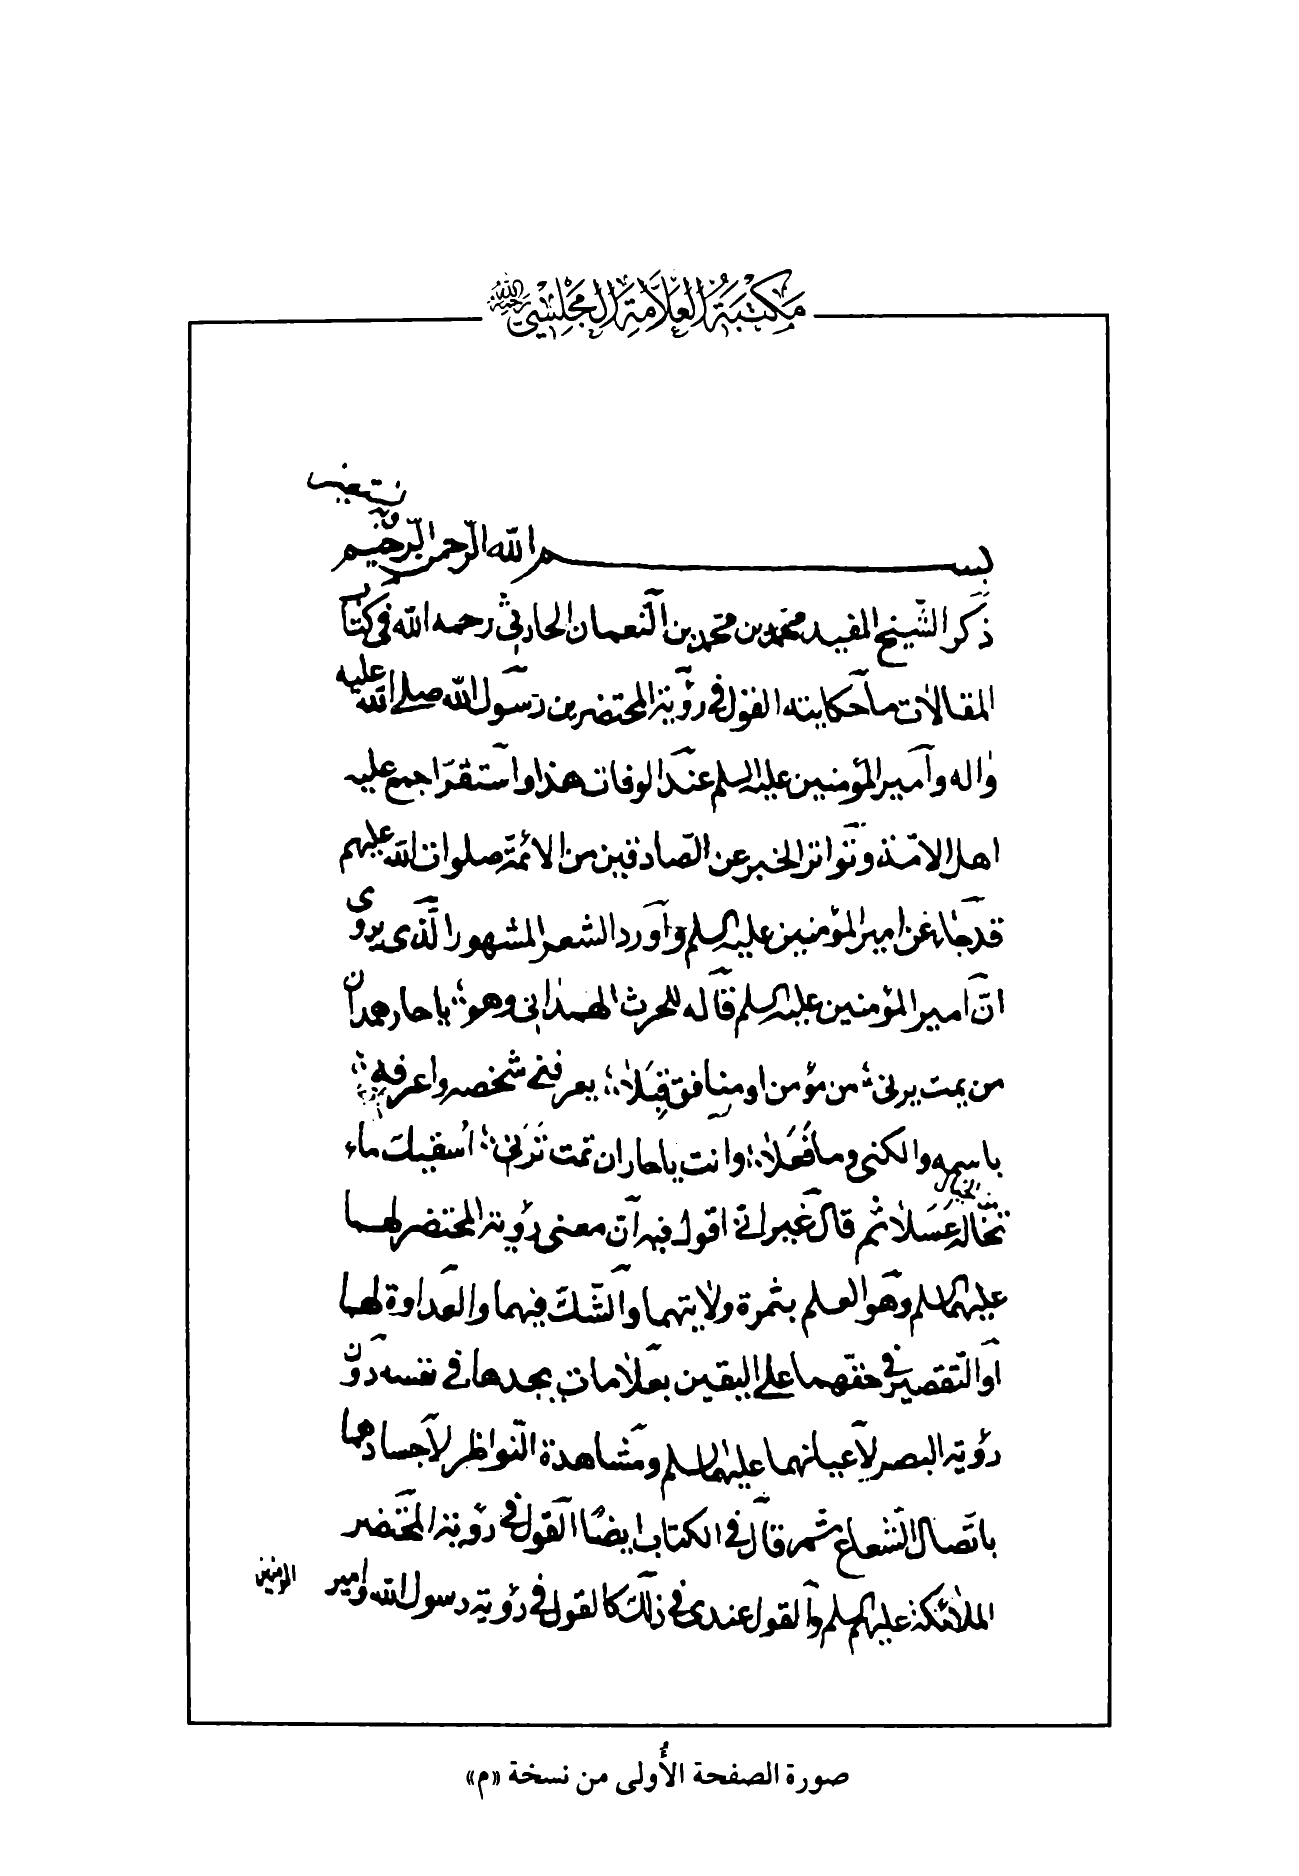 مكتبة العلامة المجلسي رحمه الله
وبه نستعين
بسم الله الرحمن الرحيم
ذكر الشيخ المفيد محمد بن محمد بن النعمان الحارثي رحمه الله في كتاب
المقالات ما حكايته القول في رؤية المحتضرين رسول الله صلى الله عليه
واله وامير المؤمنين عليه السلم عند الوفات هذا واستقر اجمع عليه
اهل الامة وتواتر الخبر عن الصادقين من الائمة صلوات الله عليهم
قد جاء عن امير المؤمنين عليه السلم واورد الشعر المشهور الذى يروى
ان امير المؤمنين عليه السلم قاله للحرث الهمدانى وهو يا حار همدان
من يمت يرنى من مؤمن او منافق قبلا يعرفنى شخصه واعرفه
باسمه والكنى وما فعلا وانت يا حار ان تمت ترنى اسقيك ماء
تخاله عسلا ثم قال غير انى اقول فيه ان معنى رؤية المحتضر لهما
عليهما السلم وهو العلم بثمرة ولايتهما والشك فيهما والعداوة لهما
او التقصير فى حقهما على اليقين بعلامات يجدها فى نفسه دون
رؤية البصر لاعيانهما عليهما السلم ومشاهدة النواظر لاجسادهما
باتصال الشعاع ثم قال فى الكتاب ايضا القول فى رؤية المحتضر
الملائكة عليهم السلم والقول عندى فى ذلك كالقول فى رؤية رسول الله وامير
المؤمنين
صورة الصفحة الأُولى من نسخة «م»